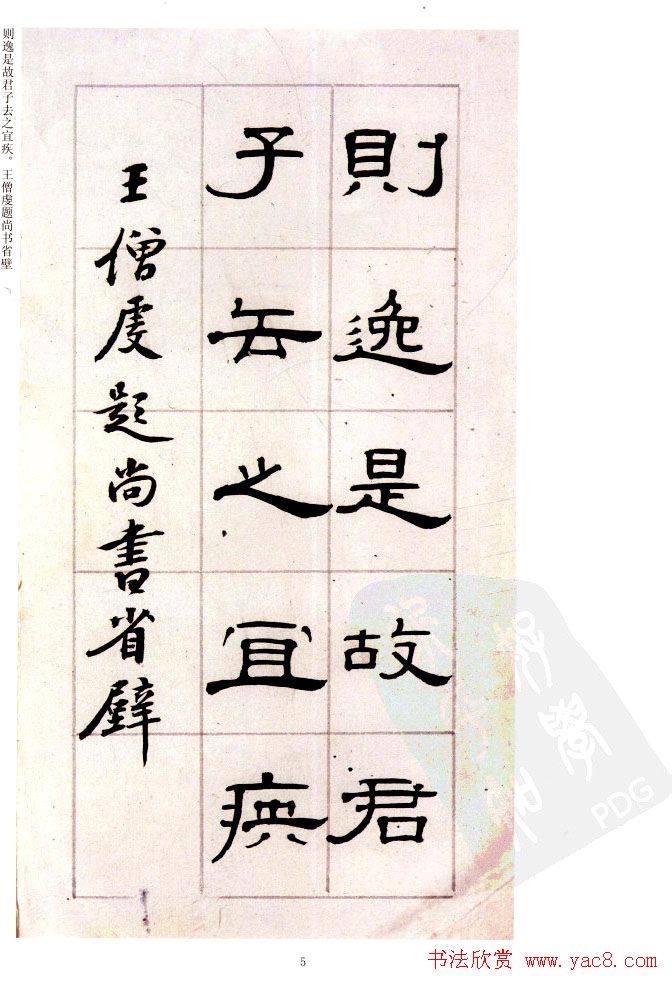 則逸是故君
子去之宜疾
王僧虔題尚書省壁
则逸是故君子去之宜疾。王僧虔题尚书省壁
PDG
5
书法欣赏 www.yac8.com